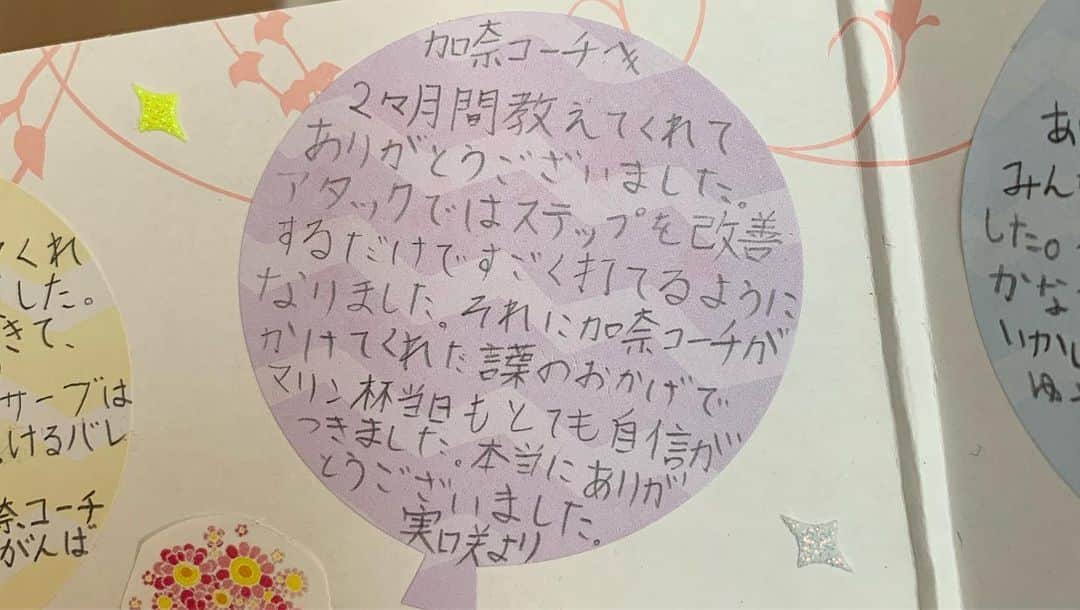 加奈コーチへ
2々月間教えてくれて
ありがとうございました。
アタックではステップを改善
するだけですごく打てるように
なりました。それに加奈コーチが
かけてくれた言葉のおかげで
マリン杯当日もとても自信が
つきました。本当にありが
とうございました。
実咲より
くれ
した。
きて、
サーブは
けるバレ
奈コーチ
がんば
あ
みん
した。
かな
いかし
ゆ